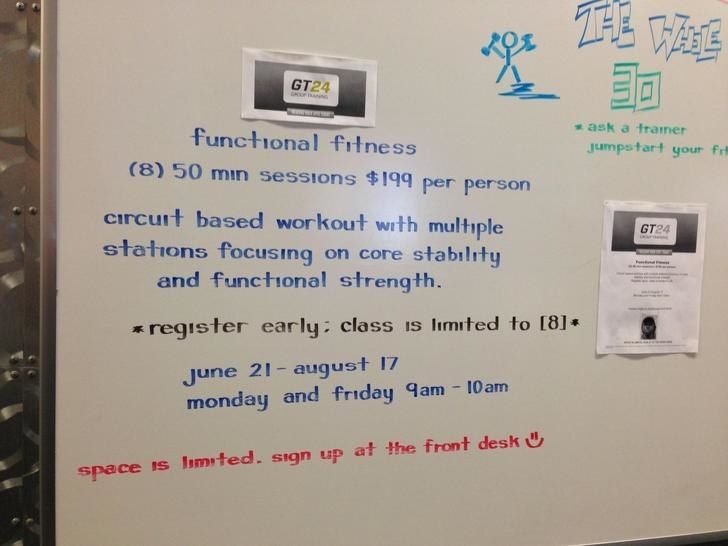 GT24
GROUP TRAINING
functional fitness
(8) 50 min sessions $199 per person
circuit based workout with multiple
stations focusing on core stability
and functional strength.
*register early; class is limited to [8]*
june 21 - august 17
monday and friday 9am - 10am
space is limited. sign up at the front desk
THE WHOLE
30
* ask a trainer
jumpstart your
GT24
GROUP TRAINING
Functional Fitness